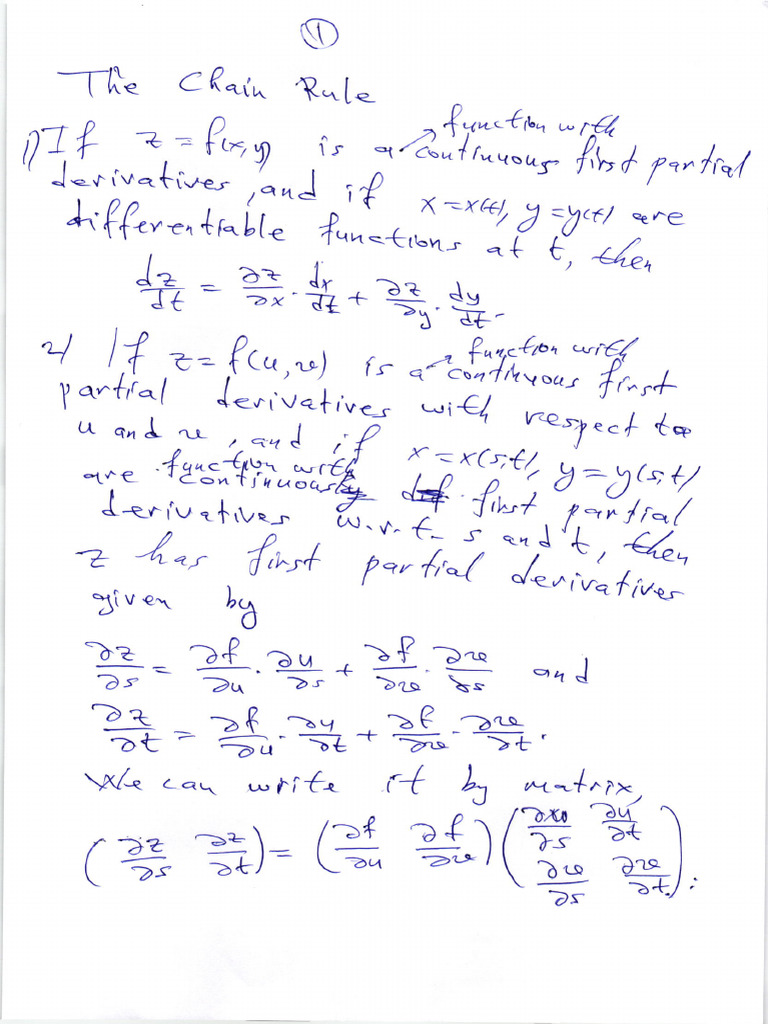 ①
The Chain Rule
function with
1) If z = f(x,y) is a continuous first partial
derivatives, and if x = x(t), y = y(t) are
differentiable functions at t, then
dz/dt = ∂z/∂x · dx/dt + ∂z/∂y · dy/dt.
function with
2) If z = f(u,v) is a continuous first
partial derivatives with respect to
u and v, and if x = x(s,t), y = y(s,t)
function with
are continuously first partial
derivatives w.r.t. s and t, then
z has first partial derivatives
given by
∂z/∂s = ∂f/∂u · ∂u/∂s + ∂f/∂v · ∂v/∂s and
∂z/∂t = ∂f/∂u · ∂u/∂t + ∂f/∂v · ∂v/∂t.
We can write it by matrix,
(∂z/∂s ∂z/∂t) = (∂f/∂u ∂f/∂v) (∂u/∂s ∂u/∂t
∂v/∂s ∂v/∂t).